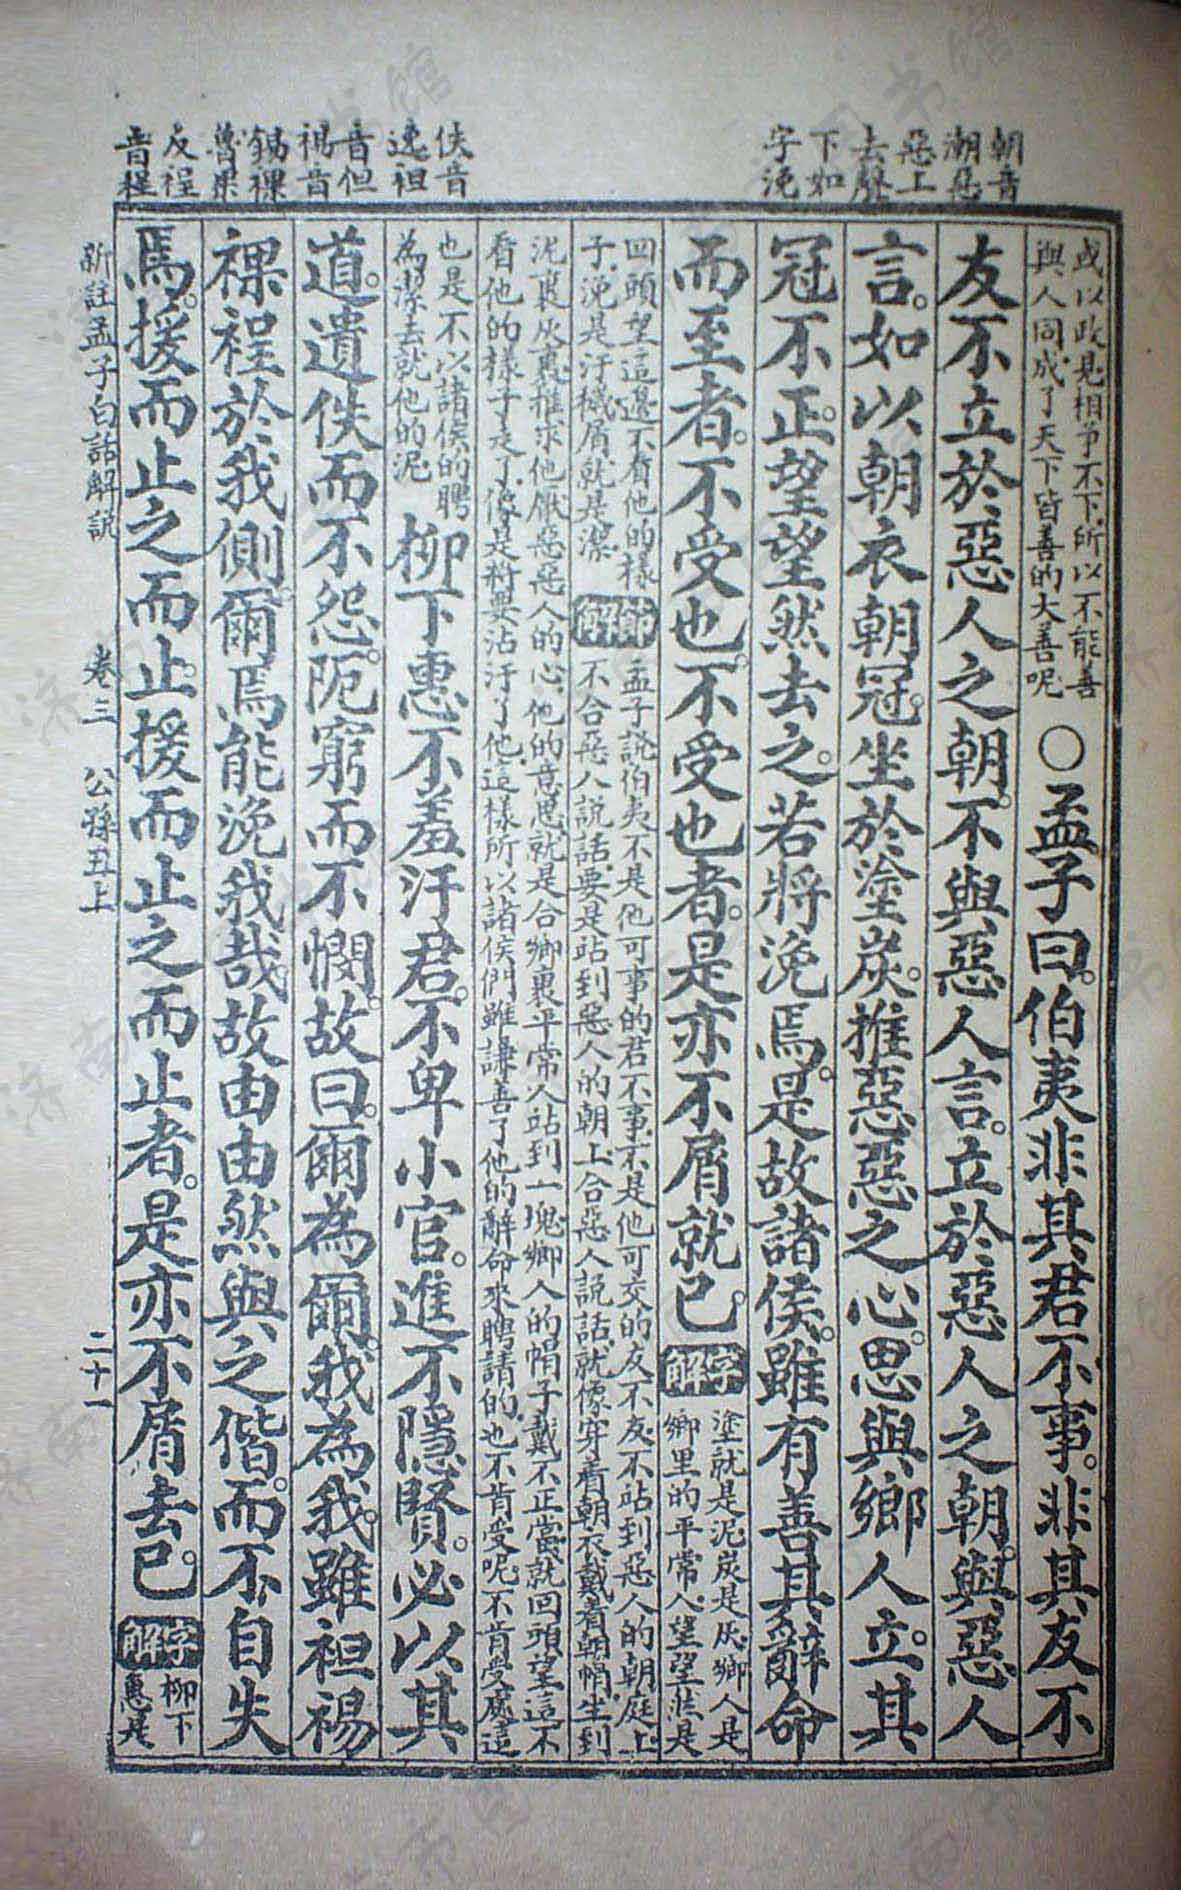 朝音
潮惡
惡上
去聲
下如
字浼
佚音
逸袒
音但
裼音
錫裸
魯果
反裎
音程
或以政見相爭不下所以不能善
與人同成了天下皆善的大善呢
○孟子曰。伯夷非其君不事。非其友不
友不立於惡人之朝。不與惡人言。立於惡人之朝。與惡人
言。如以朝衣朝冠。坐於塗炭。推惡惡之心。思與鄉人立。其
冠不正。望望然去之。若將浼焉。是故諸侯。雖有善其辭命
而至者。不受也。不受也者。是亦不屑就已。字解
塗就是泥炭是灰鄉人是
鄉里的平常人望望然是
回頭望這邊不看他的樣
子浼是汙穢屑就是潔
節解
孟子說伯夷不是他可事的君不事不是他可交的友不友不站到惡人的朝庭上
不合惡人說話要是站到惡人的朝上合惡人說話就像穿着朝衣戴着朝帽坐到
泥裏灰裏推求他厭惡惡人的心他的意思就是合鄉裏平常人站到一塊鄉人的帽子戴不正當就回頭望這不
看他的樣子走了像是將要沾汙了他這樣所以諸侯們雖謙善了他的辭命來聘請的也不肯受呢不肯受處這
也是不以諸侯的聘
為潔去就他的泥
柳下惠不羞汙君。不卑小官。進不隱賢。必以其
道。遺佚而不怨。阨窮而不憫。故曰。爾為爾。我為我。雖袒裼
裸裎於我側。爾焉能浼我哉。故由由然與之偕。而不自失
焉。援而止之而止。援而止之而止者。是亦不屑去已。字解
柳下
惠是
新註孟子白話解說 卷三 公孫丑上 二十一